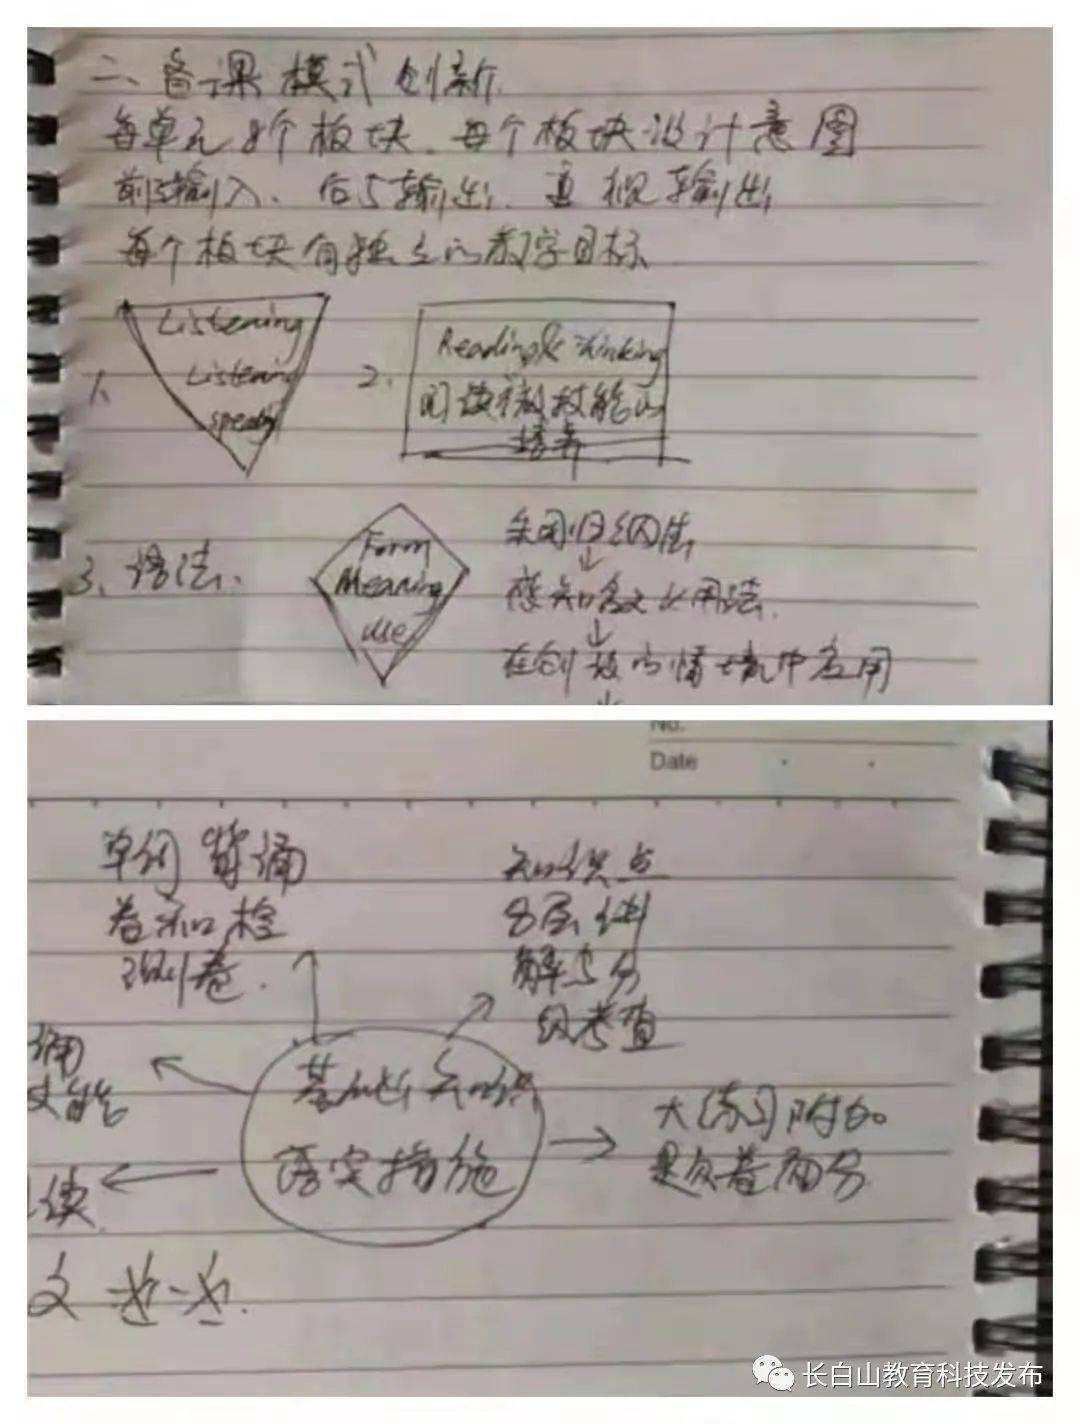 二、备课模式创新
每单元8个板块、每个板块设计意图
前5输入、后5输出、直根输出
每个板块有独立的教学目标
1.
Listening
Listening
speaking
2.
Reading & thinking
阅读微技能的
培养
3、语法.
Form
Meaning
use
采用归纳法
↓
感知意义用法.
↓
在创设的情境中应用
↓
No.
Date
单词背诵
卷和检
测卷.
知识点
分层讲
解与分
级考查
诵
文能
基础知识
落实措施
大练习附加
读
文
长白山教育科技发布